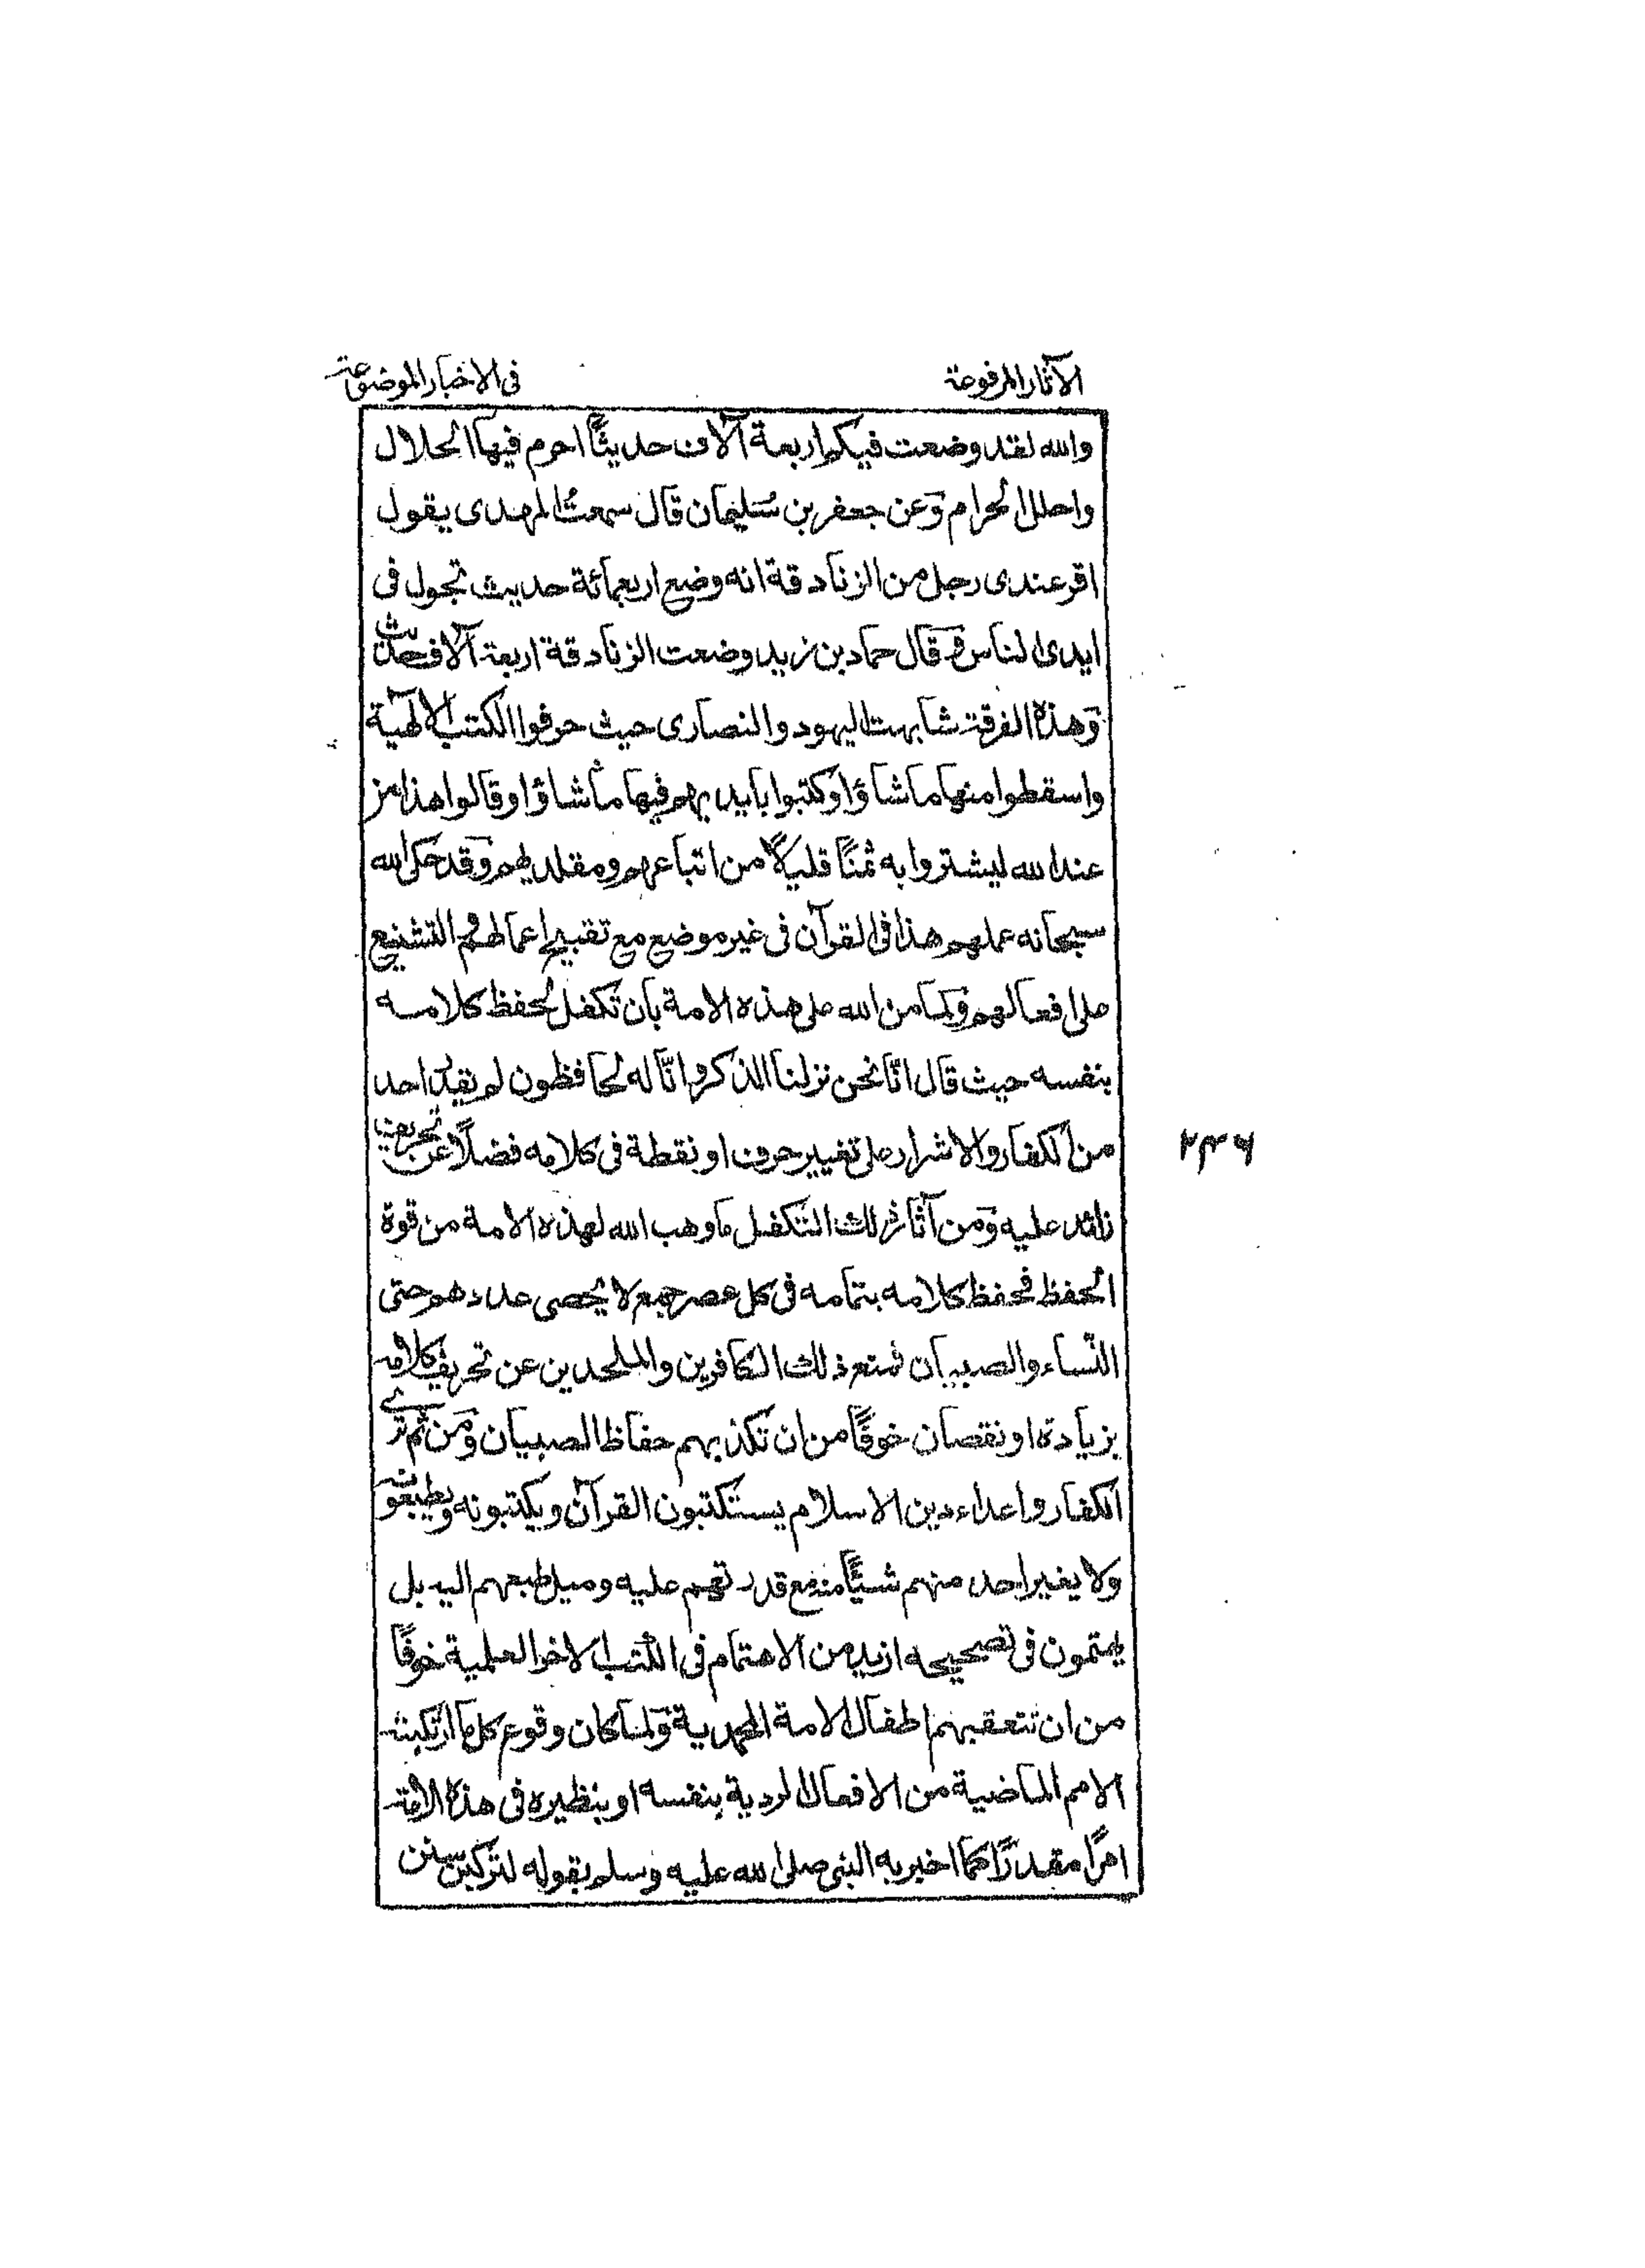 الآثار المرفوعة
فى الاخبار الموضوعة
والله لقد وضعت فيكم اربعة آلاف حديثًا احرم فيها الحلال
واحلل الحرام وعن جعفر بن سُليمان قال سمعتُ المهدى يقول
اقر عندى رجل من الزنادقة انه وضع اربعمائة حديث تجول فى
ايدى الناس وقال حماد بن زيد وضعت الزنادقة اربعة آلاف حديث
وهذه الفرقة شابهت اليهود والنصارى حيث حرفوا الكتب الالهية
واسقطوا منها ما شاؤا وكتبوا بايديهم فيها ما شاؤا وقالوا هذا من
عند الله ليشتروا به ثمنًا قليلًا من اتباعهم ومقلديهم وقد حكى الله
سبحانه عملهم هذا فى القرآن فى غير موضع مع تقبيح اعمالهم والتشنيع
على افعالهم ولما من الله على هذه الامة بان تكفل لحفظ كلامه
بنفسه حيث قال انّا نحن نزلنا الذكر وانّا له لحافظون لم يقدر احد
من الكفار والاشرار على تغيير حرف او نقطة فى كلامه فضلًا عن تحريف
زائد عليه ومن آثار ذلك التكفل ما وهب الله لهذه الامة من قوة
الحفظ فحفظ كلامه بتمامه فى كل عصر جمع لا يحصى عددهم حتى
النّساء والصبيان فمنع ذلك الكافرين والملحدين عن تحريف كلامه
بزيادة او نقصان خوفًا من ان تكذبهم حفاظ الصبيان ومن ثم ترى
الكفار واعداء دين الاسلام يستكتبون القرآن ويكتبونه ويطبعونه
ولا يغير احد منهم شيئًا منه مع قدرتهم عليه وميل طبعهم اليه بل
يهتمون فى تصحيحه ازيد من الاهتمام فى الكتب الاخر العلمية خوفًا
من ان تتعقبهم اطفال الامة المحمدية ولما كان وقوع كل ما ارتكبته
الامم الماضية من الافعال الردية بنفسه او بنظيره فى هذه الامة
امرًا مقدرًا كما اخبر به النبى صلى الله عليه وسلم بقوله لتركبن سنن
۲۳۶